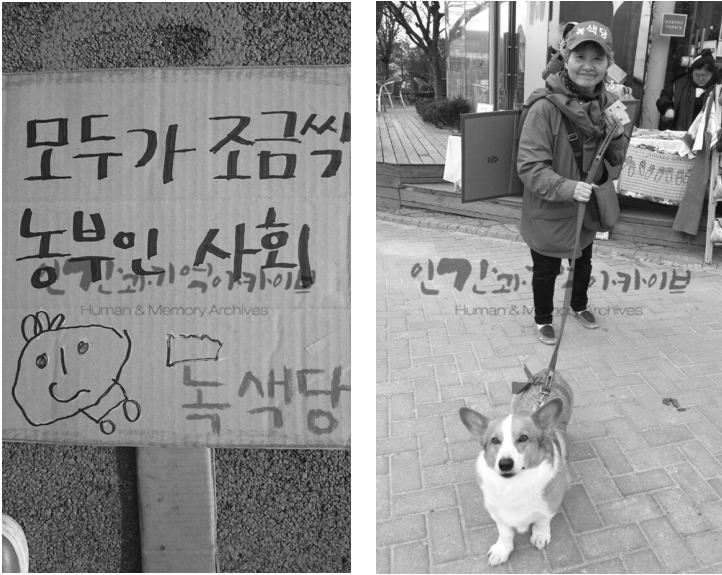 모두가 조금씩
농부인 사회
인간과기억아카이브
Human & Memory Archives
녹색당
녹색당
인간과기억아카이브
Human & Memory Archives